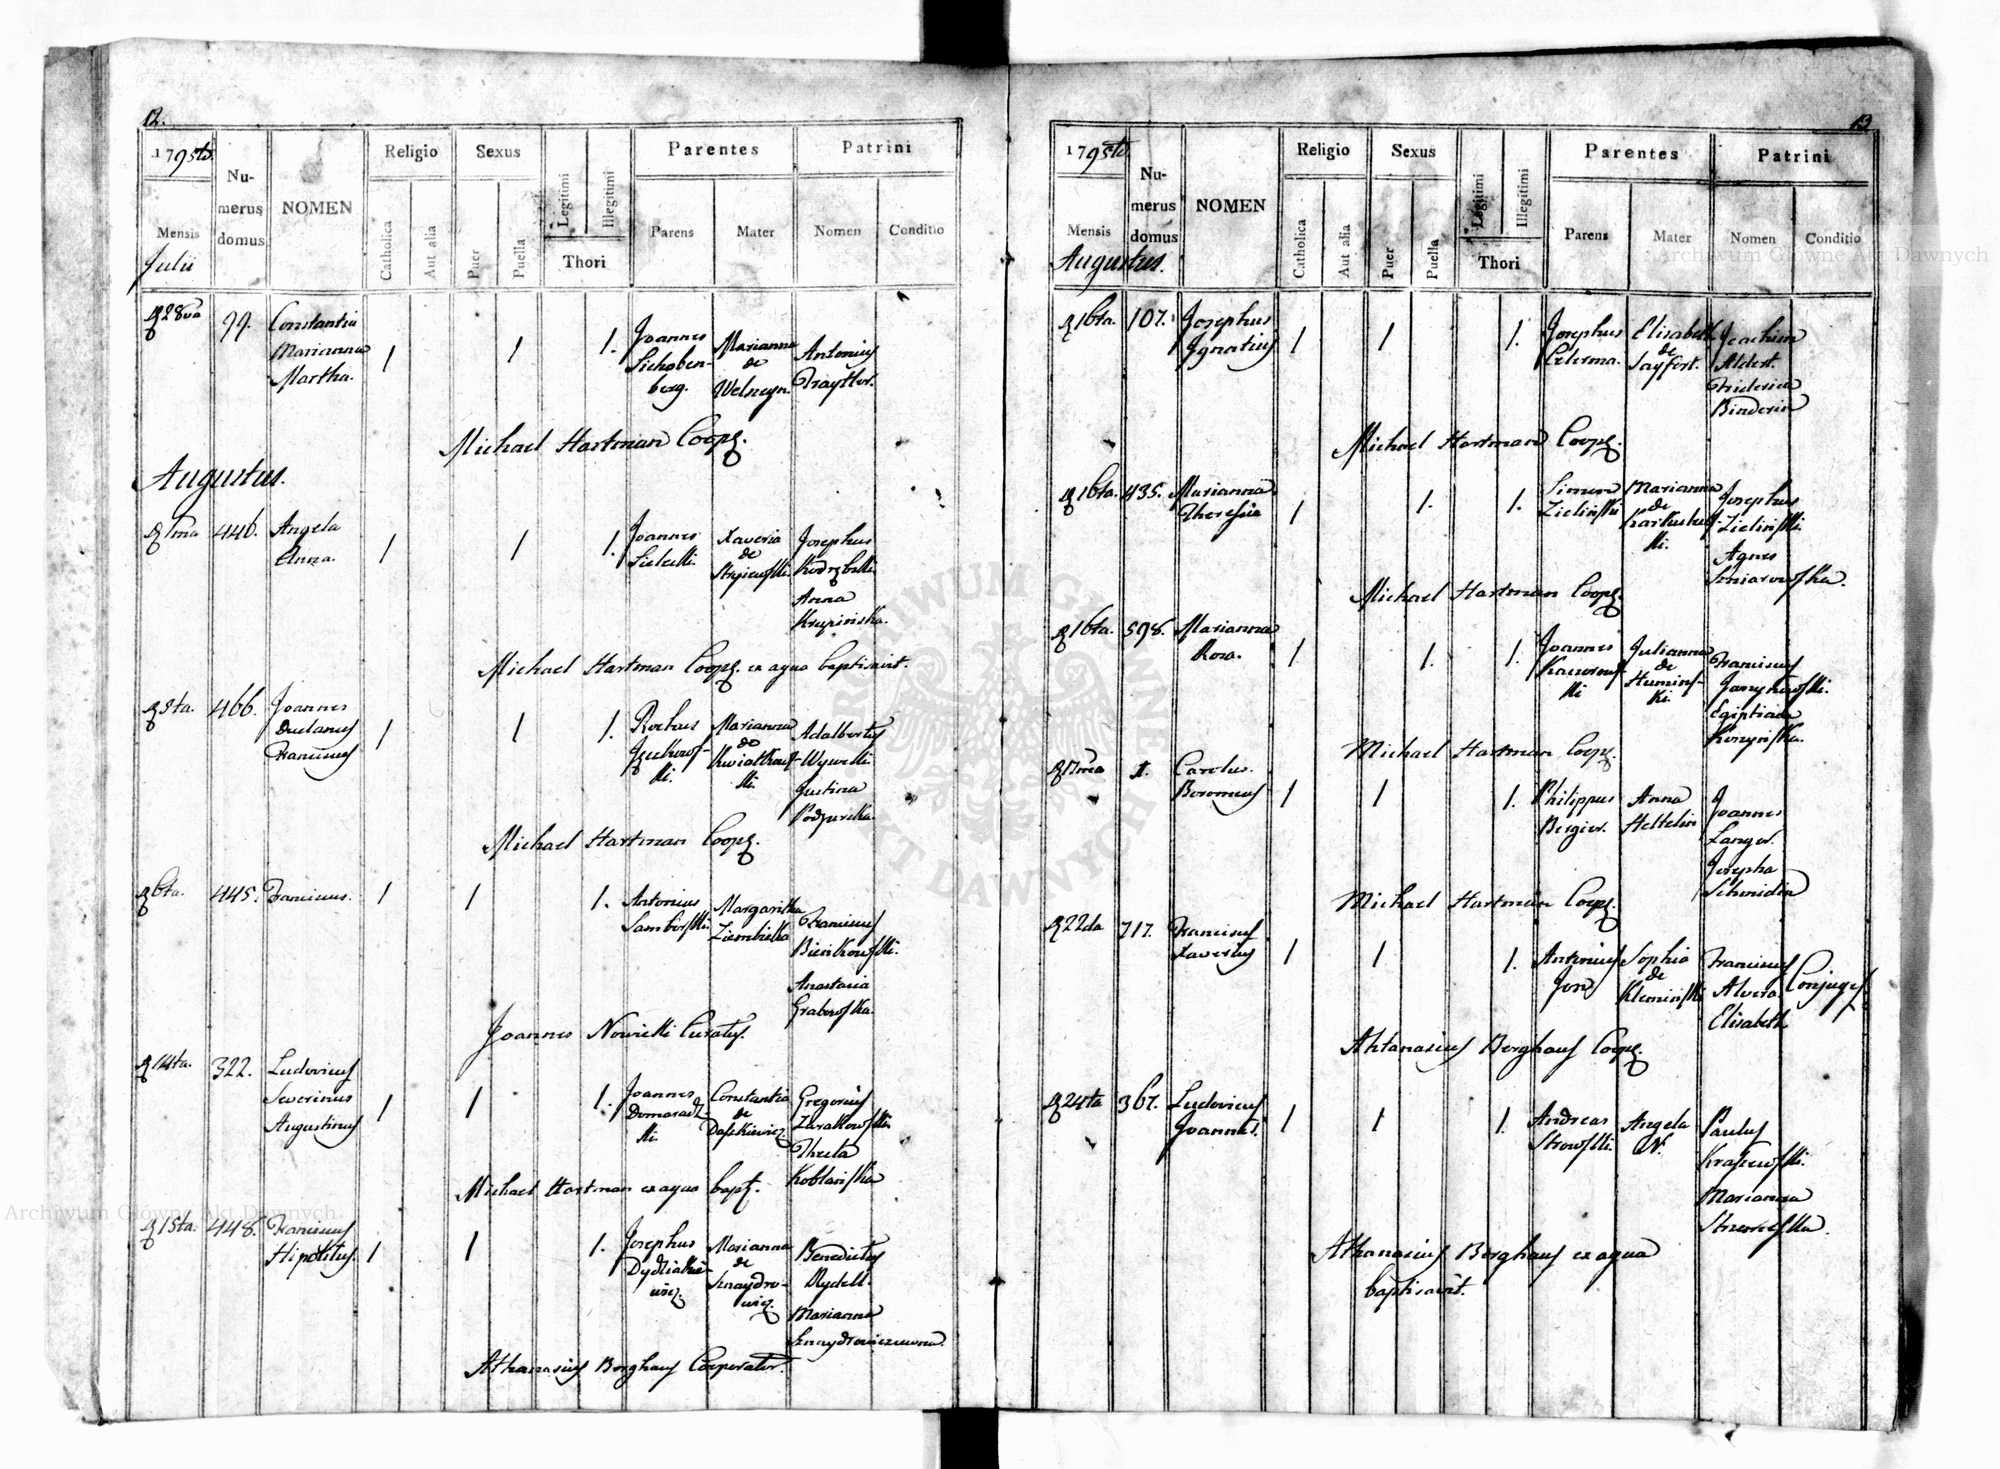 12.
1795to.
Numerus domus
NOMEN
Religio
Sexus
Legitimi
Illegitimi
Parentes
Patrini
Mensis
Catholica
Aut alia
Puer
Puella
Thori
Parens
Mater
Nomen
Conditio
Julii
28va 99. Constantia
Marianna
Martha.
1 1 1.
Joannes
Sichoben-
berg.
Marianna
de
Antonius
Michael Hartman Coop.
Augustus.
1ma 446. Angela
Anna.
1 1 1.
Joannes
Xaveria
de
Josephus
Anna
Krupińska.
Michael Hartman Coop. ex aqua baptisavit.
5ta. 466. Joannes
Franciscus
1 1 1.
Rochus
Marianna
de
Adalbertus
Justina
Michael Hartman Coop.
6ta. 445. Franciscus.
1 1 1.
Antonius
Samborski.
Margaritha
Ziembicka
Franciscus
Bieńkowski.
Anastasia
Grabowska.
Joannes Nowicki Curatus.
14ta. 322. Ludovicus
Severinus
Augustinus
1 1 1.
Joannes
Domaradz-
ki.
Constantia
de
Daszkiewicz
Gregorius
Zarakowski.
Thecla
Koblańska
Michael Hartman ex aqua bapt.
15ta. 448. Franciscus
Hipolitus.
1 1 1.
Josephus
Marianna
de
Sznaydro-
wicz.
Benedictus
Rydell.
Marianna
Sznaydrowiczowna
Athanasius Berghaus Cooperator.
13
1795to.
Numerus domus
NOMEN
Religio
Sexus
Legitimi
Illegitimi
Parentes
Patrini
Mensis
Catholica
Aut alia
Puer
Puella
Thori
Parens
Mater
Nomen
Conditio
Augustus.
16ta. 107. Josephus
Ignatius
1 1 1.
Josephus
Elisabeth
de
Sayfert.
Joachim
Aldert.
Friderica
Binderin
Michael Hartman Coop.
16ta. 435. Marianna
Theresia
1 1. 1.
Simon
Zieliński
Marianna
de
Josephus
Zieliński.
Agnes
Michael Hartman Coop.
16ta. 598. Marianna
Rosa.
1 1. 1.
Joannes
Julianna
de
Humins-
ki.
Franciscus
Michael Hartman Coop.
17ma 1. Carolus
Boromeus
1 1 1.
Philippus
Bergier.
Anna
Heltelin
Joannes
Langer.
Josepha
Schmidin
Michael Hartman Coop.
22da 717. Franciscus
Xaverius
1 1 1.
Antonius
Sophia
de
Klemiński
Franciscus
Alvera.
Elisabeth
Conjuges.
Ahtanasius Berghaus Coop.
24ta 367. Ludovicus
Joannes.
1 1 1.
Andreas
Angela
N.
Paulus
Marianna
Athanasius Berghaus ex aqua
baptisavit.
ARCHIWUM GŁÓWNE AKT DAWNYCH
Archiwum Główne Akt Dawnych
Archiwum Główne Akt Dawnych